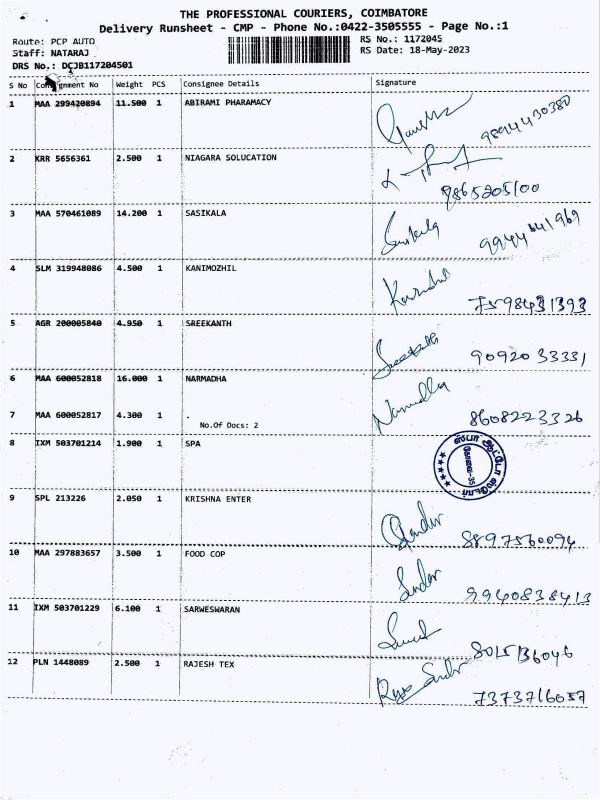 THE PROFESSIONAL COURIERS, COIMBATORE
Delivery Runsheet - CMP - Phone No.:0422-3505555 - Page No.:1
Route: PCP AUTO RS No.: 1172045
Staff: NATARAJ RS Date: 18-May-2023
DRS No.: DCJB117204501
S No Consignment No Weight PCS Consignee Details Signature
1 MAA 299420894 11.500 1 ABIRAMI PHARAMACY
9894430380
2 KRR 5656361 2.500 1 NIAGARA SOLUCATION
9865205100
3 MAA 570461089 14.200 1 SASIKALA Sasikala
9944641969
4 SLM 319948086 4.500 1 KANIMOZHIL
7598431393
5 AGR 200005840 4.950 1 SREEKANTH
9092033331
6 MAA 600052818 16.000 1 NARMADHA Narmadha
7 MAA 600052817 4.300 1 .
No.Of Docs: 2 8608223326
8 IXM 503701214 1.900 1 SPA
ஸ்பா ஆட்டோ ஸ்டோர்
கோவை-35
9 SPL 213226 2.050 1 KRISHNA ENTER
8897560094
10 MAA 297883657 3.500 1 FOOD COP
9940838413
11 IXM 503701229 6.100 1 SARWESWARAN
8015136046
12 PLN 1448089 2.500 1 RAJESH TEX
7373716057